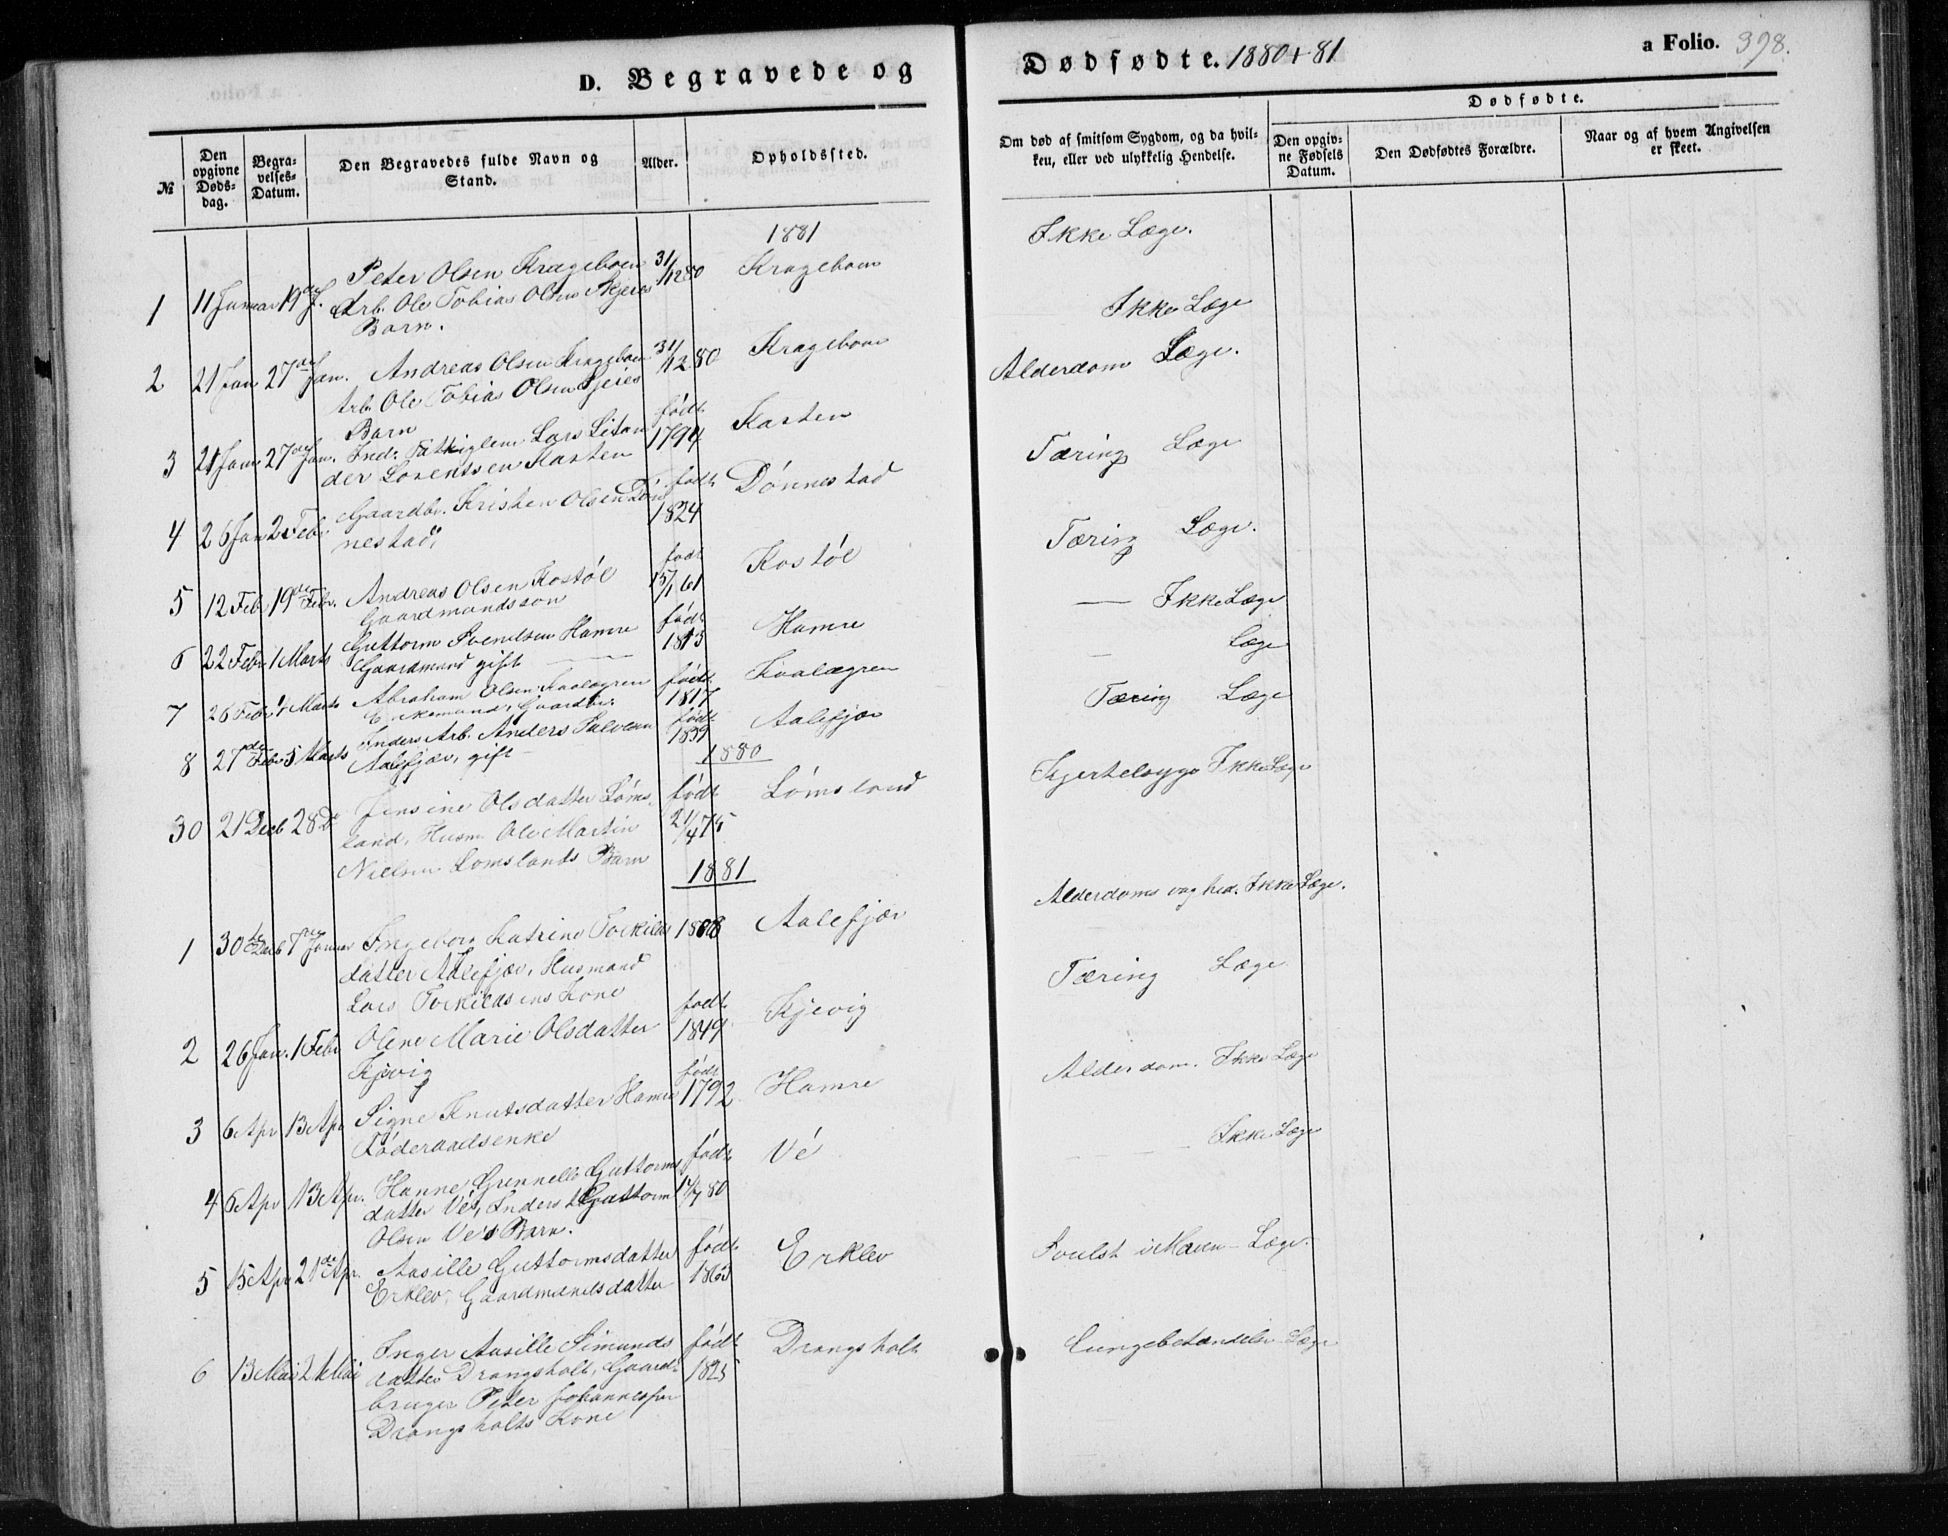 D. Begravede og
Dødfødte. 1880 + 81
a Folio. 398.
№
Den opgivne Døds-dag.
Begra-velses-Datum.
Den Begravedes fulde Navn og Stand.
Alder.
Opholdssted.
Om død af smitsom Sygdom, og da hvil-ken, eller ved ulykkelig Hendelse.
Dødfødte.
Den opgiv-ne Fødsels Datum.
Den Dødfødtes Forældre.
Naar og af hvem Angivelsen er skeet.
1881
1 11 Januar 19de J. Peter Olsen Krageboen 31/12 80 Krageboen Ikke Læge.
Arb. Ole Tobias Olsen Skjeies
Barn.
2 21 Jan 27de Jan. Andreas Olsen Krageboen 31/12 80 Krageboen Ikke Læge
Arb. Ole Tobias Olsen Skjeies
Barn
3 21 Jan 27de Jan. Ind: Fattiglem Lars Litan født 1794 Karten Alderdom Læge.
der Lorentsen Karten
4 26 Jan 2 Febr Gaardbr. Kristen Olsen Dön født 1824 Dönnestad Tæring Læge
nestad,
5 12 Febr 19de Febr. Andreas Olsen Kostöl født 15/1 61 Kostöl Tæring Læge.
Gaardmandsson
6 22 Febr 1 Marts Guttorm Svendsen Hamre født 1813 Hamre — Ikke Læge
Gaardmand gift
7 26 Febr 4 Marts Abraham Olsen Kvalegren født 1817 Kvalegren — Læge
Enkemand, Gaardbr.
8 27de Febr 5 Marts Inders Arb. Anders Salvesen født 1839 Aalefjær Tæring Læge
Aalefjær, gift
1880
30 21 Decb 28 D Jensine Olsdatter Löms- født 21/4 75 Lömsland Kjertelsyge Ikke Læge
land, Husm. Ole Martin
Nielsen Lömslands Barn
1881
1 30te Decb 7de Januar Ingeborg Katrine Torkilds 1808 Aalefjær Alderdoms svaghed. Ikke Læge.
datter Aalefjær, Husmand
Lars Torkildsens Kone
2 26 Jan. 1 Febr Olene Marie Olsdatter født 1849 Kjevig Tæring Læge
Kjevig
3 6 Apr 13 Apr Signe Knutsdatter Hamre født 1792 Hamre Alderdom. Ikke Læge
Föderaadsenke
4 6 Apr 13 Apr. Hanne Grennelle Guttorms født 17/7 80 Vé Ikke Læge
datter Vé, Inderst Guttorm
Olsen Ve's Barn.
5 15 Apr 21de Apr. Aasille Guttormsdatter født 1863 Erklev Svulst i Maven – Læge.
Erklev, Gaardmandsdatter
6 13 Mai 21 Mai Inger Aasille Simunds født 1825 Drangsholt Lungebetændelse Læge
datter Drangsholt, Gaard-
bruger Peter Johannessen
Drangsholts Kone